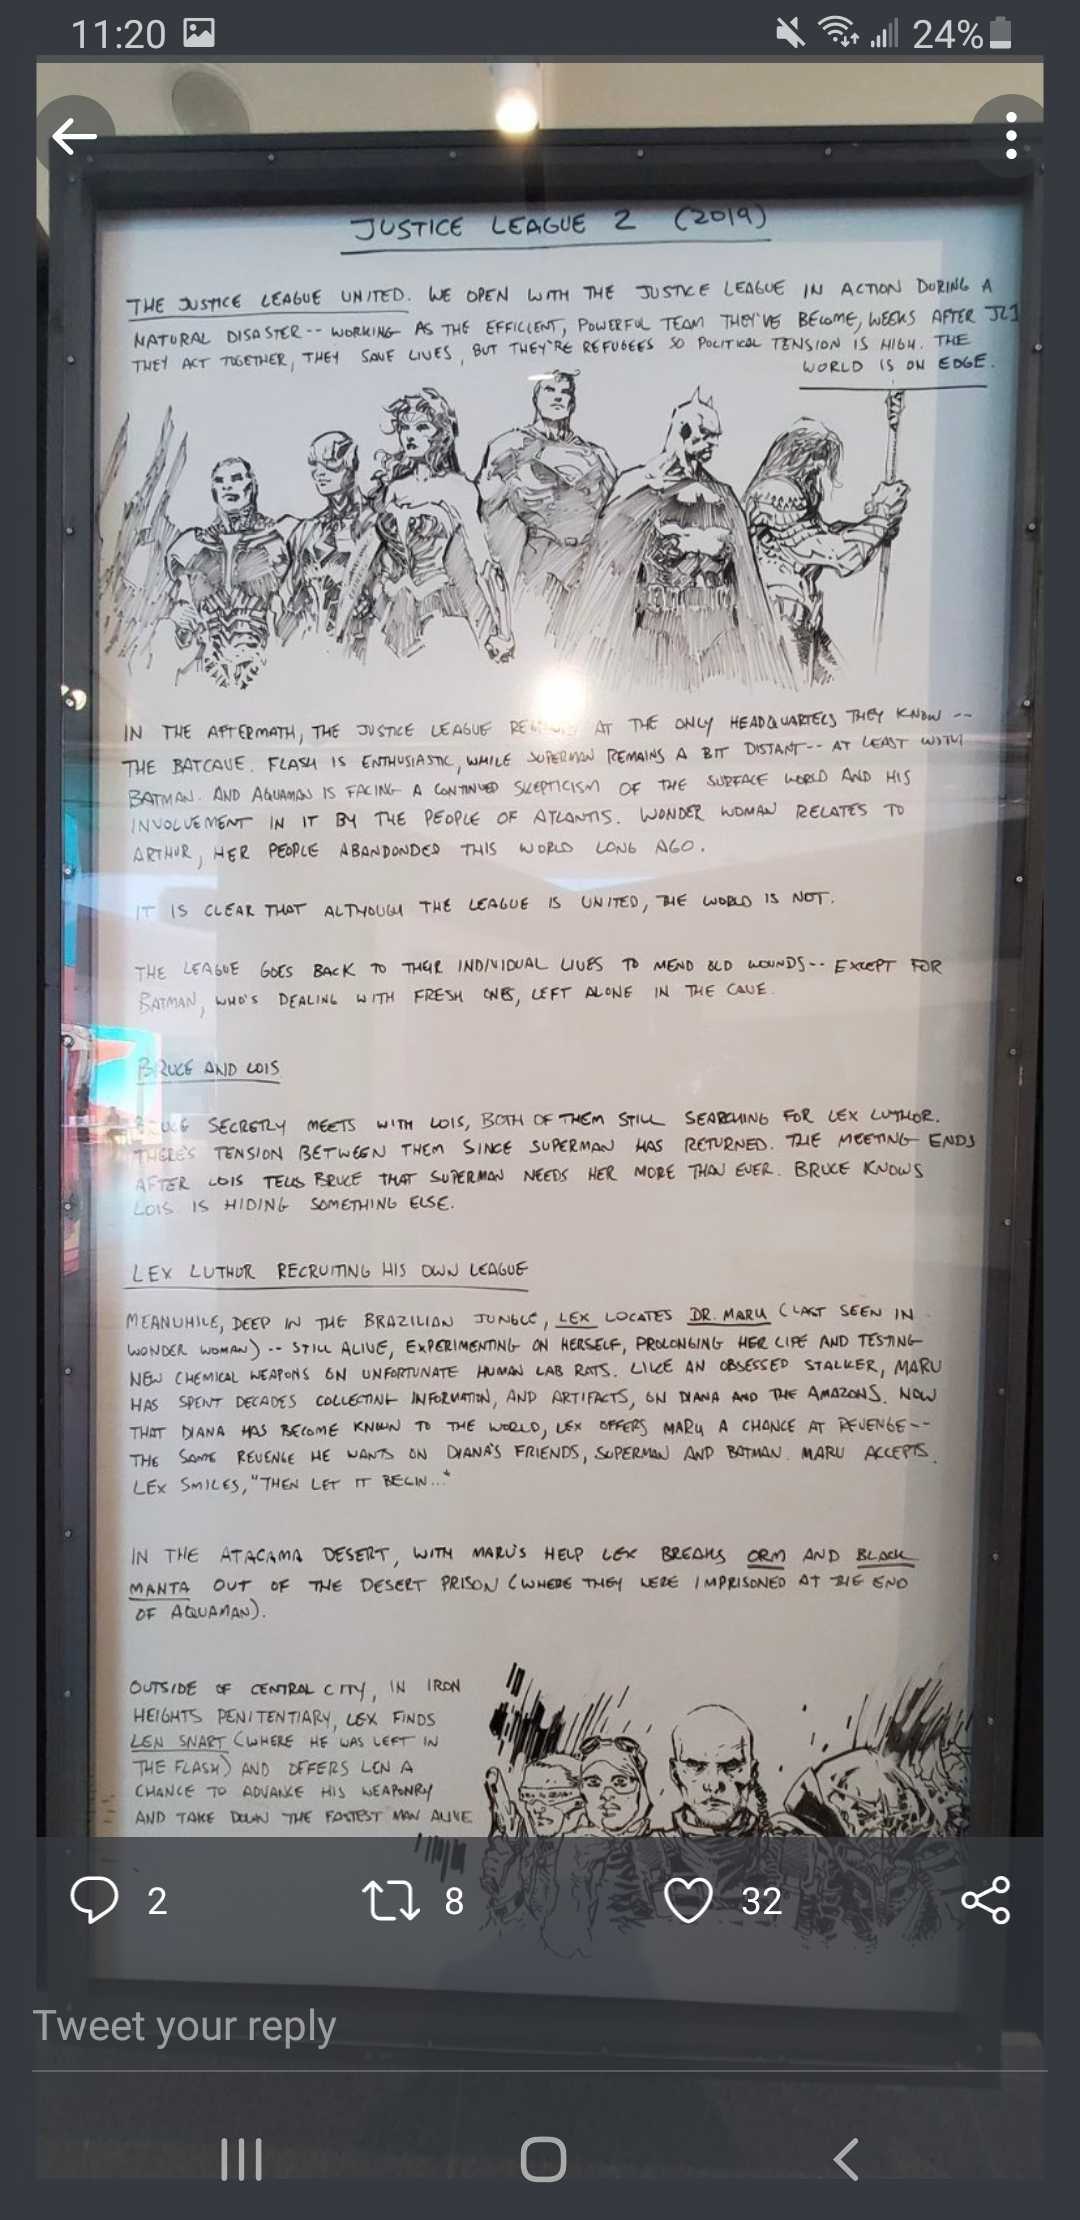 11:20
24%
JUSTICE LEAGUE 2 (2019)
THE JUSTICE LEAGUE UNITED. WE OPEN WITH THE JUSTICE LEAGUE IN ACTION DURING A
NATURAL DISASTER -- WORKING AS THE EFFICIENT, POWERFUL TEAM THEY'VE BECOME, WEEKS AFTER JL1
THEY ACT TOGETHER, THEY SAVE LIVES, BUT THEY'RE REFUGEES SO POLITICAL TENSION IS HIGH. THE
WORLD IS ON EDGE.
IN THE AFTERMATH, THE JUSTICE LEAGUE AT THE ONLY HEADQUARTERS THEY KNOW --
THE BATCAVE. FLASH IS ENTHUSIASTIC, WHILE SUPERMAN REMAINS A BIT DISTANT -- AT LEAST WITH
BATMAN. AND AQUAMAN IS FACING A CONTINUED SKEPTICISM OF THE SURFACE WORLD AND HIS
INVOLVEMENT IN IT BY THE PEOPLE OF ATLANTIS. WONDER WOMAN RELATES TO
ARTHUR, HER PEOPLE ABANDONDED THIS WORLD LONG AGO.
IT IS CLEAR THAT ALTHOUGH THE LEAGUE IS UNITED, THE WORLD IS NOT.
THE LEAGUE GOES BACK TO THEIR INDIVIDUAL LIVES TO MEND OLD WOUNDS -- EXCEPT FOR
BATMAN, WHO'S DEALING WITH FRESH ONES, LEFT ALONE IN THE CAVE.
BRUCE AND LOIS
BRUCE SECRETLY MEETS WITH LOIS, BOTH OF THEM STILL SEARCHING FOR LEX LUTHOR.
THERE'S TENSION BETWEEN THEM SINCE SUPERMAN HAS RETURNED. THE MEETING ENDS
AFTER LOIS TELLS BRUCE THAT SUPERMAN NEEDS HER MORE THAN EVER. BRUCE KNOWS
LOIS IS HIDING SOMETHING ELSE.
LEX LUTHOR RECRUITING HIS OWN LEAGUE
MEANWHILE, DEEP IN THE BRAZILIAN JUNGLE, LEX LOCATES DR. MARU (LAST SEEN IN
WONDER WOMAN) -- STILL ALIVE, EXPERIMENTING ON HERSELF, PROLONGING HER LIFE AND TESTING
NEW CHEMICAL WEAPONS ON UNFORTUNATE HUMAN LAB RATS. LIKE AN OBSESSED STALKER, MARU
HAS SPENT DECADES COLLECTING INFORMATION, AND ARTIFACTS, ON DIANA AND THE AMAZONS. NOW
THAT DIANA HAS BECOME KNOWN TO THE WORLD, LEX OFFERS MARU A CHANCE AT REVENGE --
THE SAME REVENGE HE WANTS ON DIANA'S FRIENDS, SUPERMAN AND BATMAN. MARU ACCEPTS.
LEX SMILES, "THEN LET IT BEGIN..."
IN THE ATACAMA DESERT, WITH MARU'S HELP LEX BREAKS ORM AND BLACK
MANTA OUT OF THE DESERT PRISON (WHERE THEY WERE IMPRISONED AT THE END
OF AQUAMAN).
OUTSIDE OF CENTRAL CITY, IN IRON
HEIGHTS PENITENTIARY, LEX FINDS
LEN SNART (WHERE HE WAS LEFT IN
THE FLASH) AND OFFERS LEN A
CHANCE TO ADVANCE HIS WEAPONRY
AND TAKE DOWN THE FASTEST MAN ALIVE
2
8
32
Tweet your reply